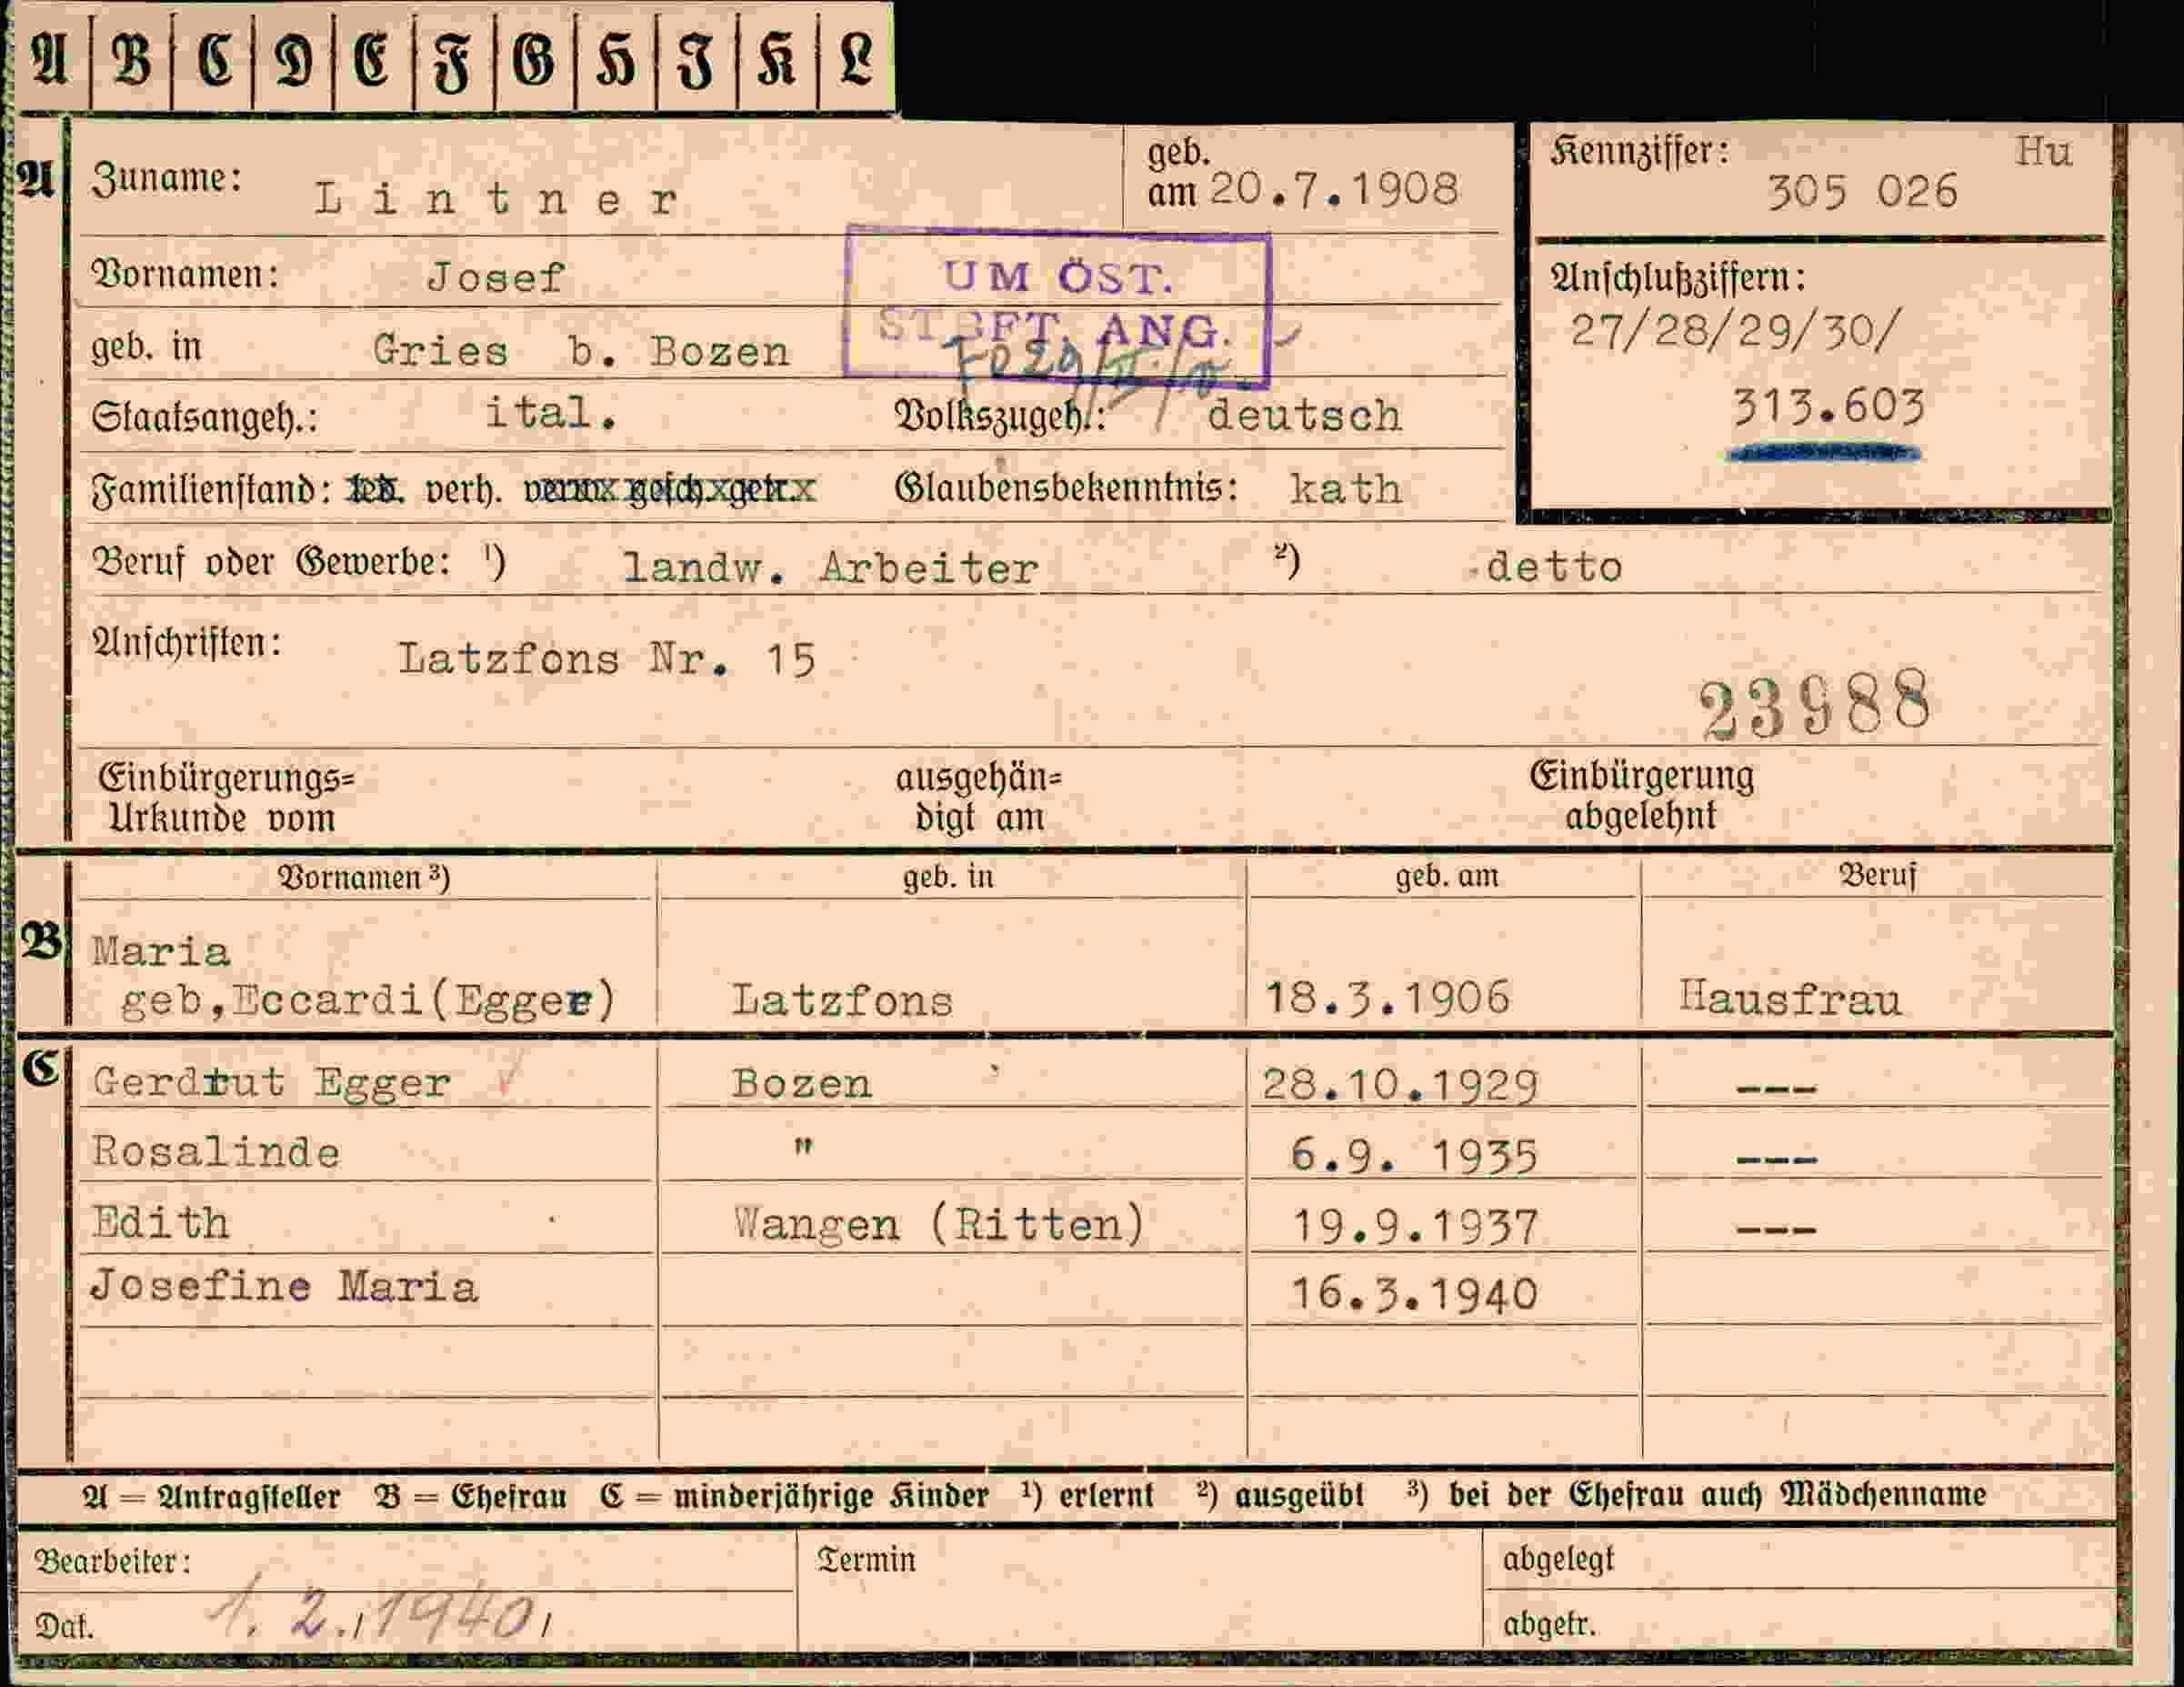 A B C D E F G H I K L
A Zuname: Lintner geb. am 20.7.1908
Kennziffer: Hu
305 026
Vornamen: Josef
UM ÖST.
ST. ANG.
geb. in Gries b. Bozen
Anschlußziffern:
27/28/29/30/
313.603
Staatsangeh.: ital. Volkszugeh.: deutsch
Familienstand: led. verh. verw. gesch. getr. Glaubensbekenntnis: kath
Beruf oder Gewerbe: 1) landw. Arbeiter 2) detto
Anschriften: Latzfons Nr. 15
23988
Einbürgerungs= ausgehän= Einbürgerung
Urkunde vom digt am abgelehnt
Vornamen 3) geb. in geb. am Beruf
B Maria
geb,Eccardi(Egger) Latzfons 18.3.1906 Hausfrau
C Gerdrut Egger Bozen 28.10.1929 ---
Rosalinde " 6.9. 1935 ---
Edith Wangen (Ritten) 19.9.1937 ---
Josefine Maria 16.3.1940
A = Antragsteller B = Ehefrau C = minderjährige Kinder 1) erlernt 2) ausgeübt 3) bei der Ehefrau auch Mädchenname
Bearbeiter: Termin abgelegt
Dat. 1. 2. 1940 abgetr.